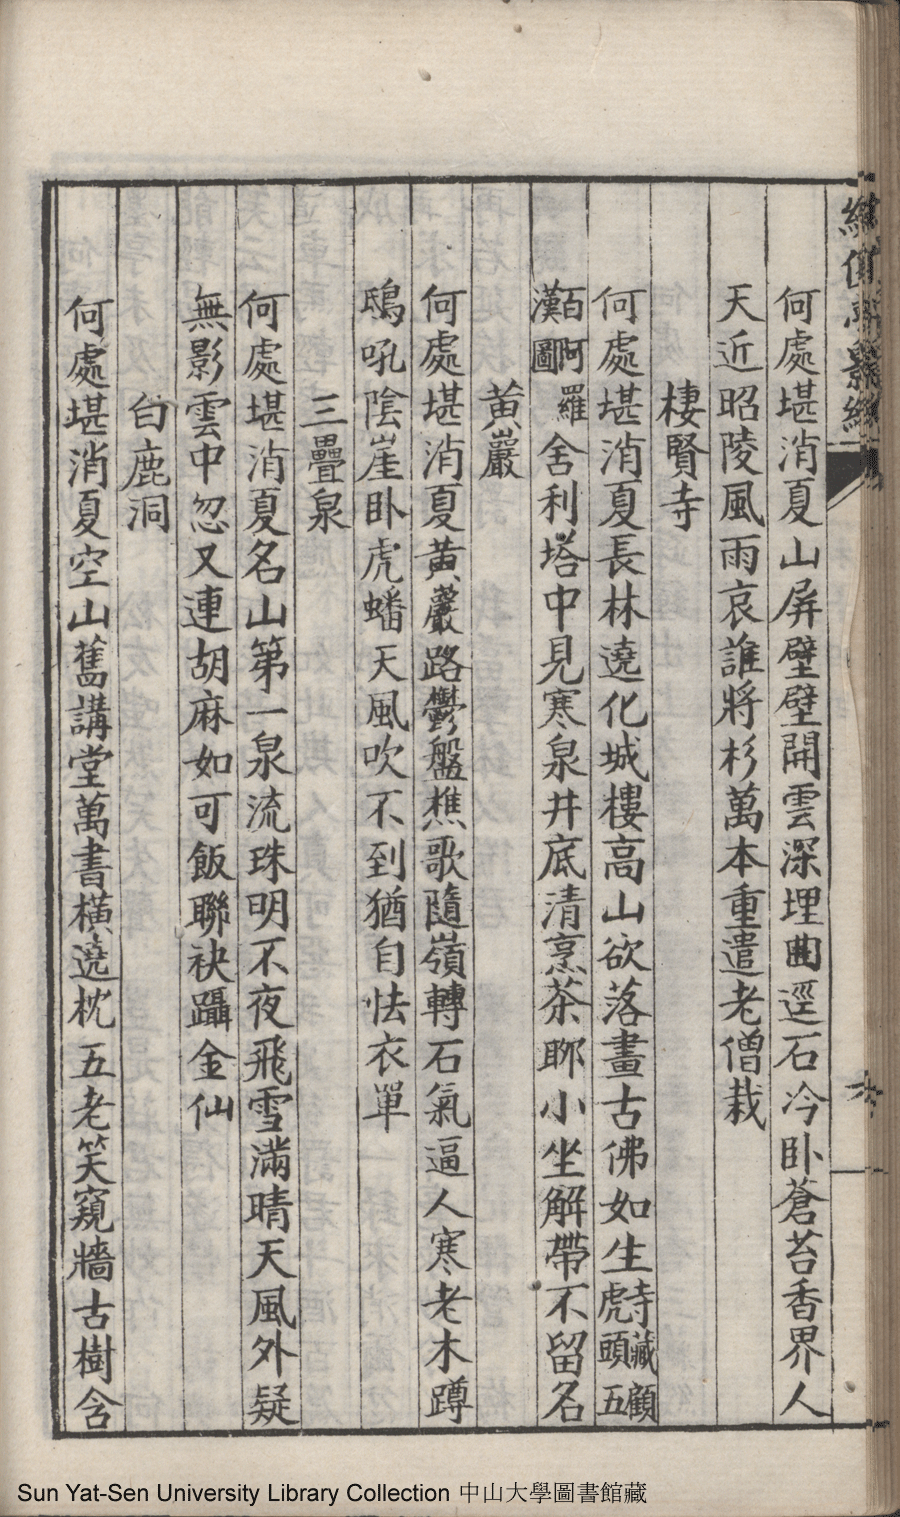 何處堪消夏山屏壁壁開雲深埋曲逕石今卧蒼苔香界人
天近昭陵風雨哀誰將杉萬本重遣老僧栽
棲賢寺
何處堪消夏長林遶化城樓高山欲落畫古佛如生寺藏顧虎頭五
百阿羅漢圖舍利塔中見寒泉井底清烹茶聊小坐解帶不留名
黄巖
何處堪消夏黄巖路鬱盤樵歌隨嶺轉石氣逼人寒老木蹲
鴟吼陰崖卧虎蟠天風吹不到猶自怯衣單
三疊泉
何處堪消夏名山第一泉流珠明不夜飛雪滿晴天風外疑
無影雲中忽又連胡麻如可飯聯袂躡金仙
白鹿洞
何處堪消夏空山舊講堂萬書橫遶枕五老笑窺牆古樹含
Sun Yat-Sen University Library Collection 中山大學圖書館藏